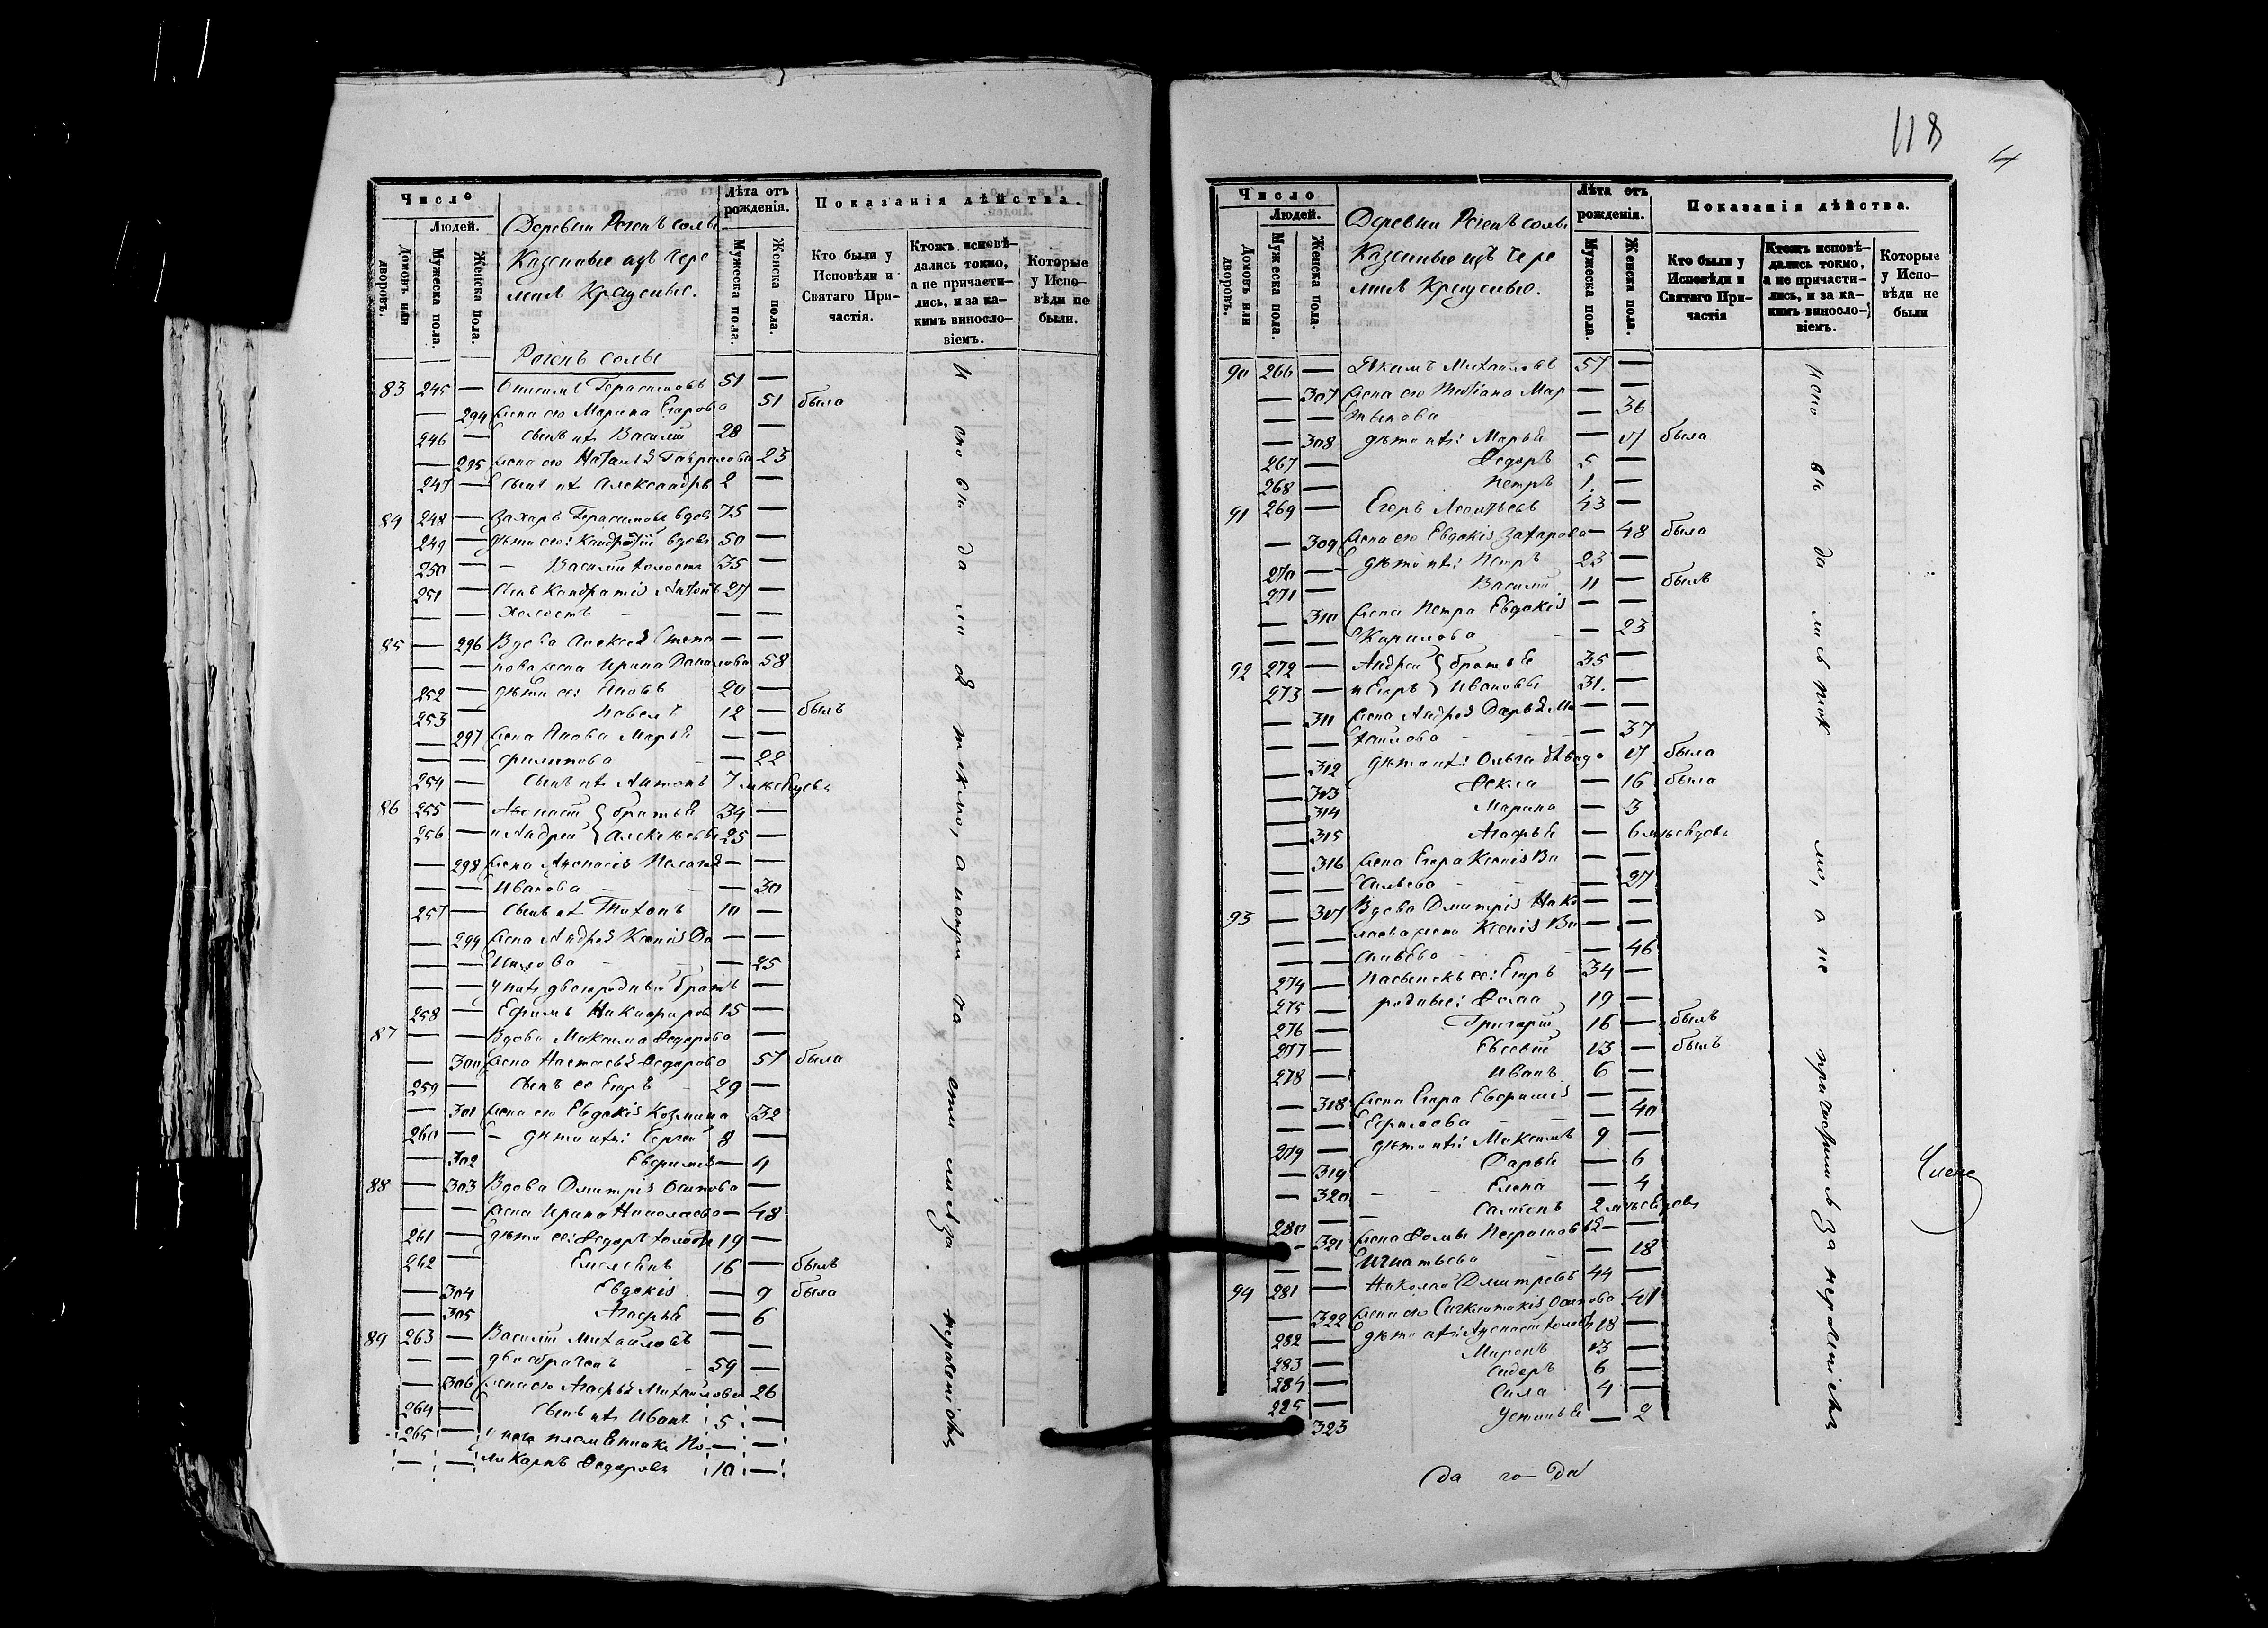 118
Число
Людей.
Домовъ или дворовъ.
Мужеска пола.
Женска пола.
Деревни
Казенные изъ Чере
мисъ Крещеные.
Лѣта отъ рожденія.
Мужеска пола.
Женска пола.
Показанія дѣйства.
Кто были у Исповѣди и Святаго Причастія.
Ктожъ исповѣдались токмо, а не причастились, и за какимъ винословіемъ.
Которые у Исповѣди не были.
83 245 — Онисимъ Герасимовъ 51 —
— 294 жена его Марина Егорова 51 была
246 — сынъ ихъ Василій 28 —
— 295 жена его Наталья Гаврилова 23
247 — сынъ ихъ Александръ 2 —
84 248 — Захаръ Герасимовъ вдов 75 —
249 — дѣти его: Кондратій вдовъ 50 —
250 — Василій холостъ 35 —
251 — сынъ Кондратія Антонъ 27 —
— холостъ — —
85 — 296 Вдова Алексѣя Степа — —
— — нова жена Ирина Данилова 58
252 — дѣти ее: Яковъ 20 —
253 — Павелъ 12 — былъ
— 297 жена Якова Марья — —
— — Филипова — 22
254 — сынъ ихъ Антонъ 7 мѣсяцевъ
86 255 — Афанасій } братья 34 —
256 — и Андрей } Алексѣевы 25 —
— 298 жена Афанасія Пелагея — —
— — Иванова — 30
257 — сынъ ихъ Тихонъ 10 —
— 299 жена Андрея Ксенія Да — —
— — нилова — 25
— — у нихъ двоюродный братъ —
258 — Ефимъ Никифоровъ 15 —
87 — Вдова Максима Федорова —
— 300 жена Настасья Федорова 57 была
259 — сынъ ее Егоръ 29 —
— 301 жена его Евдокія Козмина 32
260 — дѣти ихъ: Сергей 8 —
— 302 Евфимія — 4
88 — 303 Вдова Дмитрія Осипова —
— — жена Ирина Николаева — 48
261 — дѣти ее: Федоръ холостъ 19 —
262 — Емельянъ 16 — былъ
— 304 Евдокія — 9 была
— 305 Агафья — 6
89 263 — Василій Михайловъ — —
— — двоебраченъ 59 —
— 306 жена его Агафья Михайлова 26
264 — сынъ ихъ Иванъ 5 —
265 — у него племянникъ По — —
— — ликарпъ Федоровъ 10 —
Исповѣдались токмо, а не причастились за нераченіемъ
Число
Людей.
Домовъ или дворовъ.
Мужеска пола.
Женска пола.
Деревни
Казенные изъ Чере
мисъ Крещеные.
Лѣта отъ рожденія.
Мужеска пола.
Женска пола.
Показанія дѣйства.
Кто были у Исповѣди и Святаго Причастія
Ктожъ исповѣдались токмо, а не причастились, и за какимъ винословіемъ.
Которые у Исповѣди не были
90 266 — Якимъ Михайловъ 57 —
— 307 жена его Татіана Мар — —
— — тынова — 36
— 308 дѣти ихъ: Марья — 17 была
267 — Федоръ 5 —
268 — Петръ 1 —
91 269 — Егоръ Леонтьевъ 43 —
— 309 жена его Евдокія Захарова — 48 была
270 — дѣти ихъ: Петръ 23 —
271 — Василій 11 — былъ
— 310 жена Петра Евдокія — —
— — Карилова — 23
92 272 — Андрей } братья 35 —
273 — и Егоръ } Ивановы 31 —
— 311 жена Андрея Дарья Ми — —
— — хайлова — 37
— 312 дѣти ихъ: Ольга дѣвица 17 была
— 313 Фекла — 16 была
— 314 Марина — 3
— 315 Агафья — 6 мѣсяцевъ
— 316 жена Егора Ксенія Ва — —
— — сильева — 27
93 — 317 Вдова Дмитрія Нико — —
— — лаева жена Ксенія Ва — —
— — сильева — 46
274 — пасынокъ ее: Егоръ 34 —
275 — родные: Фома 19 —
276 — Григорій 16 — былъ
277 — Евсевій 13 — былъ
278 — Иванъ 6 —
— 318 жена Егора Евфимія —
— Ефимова — 40
279 — дѣти ихъ: Максимъ 9 —
— 319 Дарья — 6
— 320 Елена — 4
280 — Самсонъ 2 мѣсяцевъ
— 321 жена Фомы —
— — Игнатьева — 18
94 281 — Николай Дмитревъ 44 —
— 322 жена его Синклитикія Осипова 41
282 — дѣти ихъ: Афанасій холостъ 18 —
283 — Миронъ 13 —
284 — Сидоръ 6 —
285 — Сила 4 —
323 Устинья — 2
Исповѣдались токмо, а не причастились за нераченіемъ